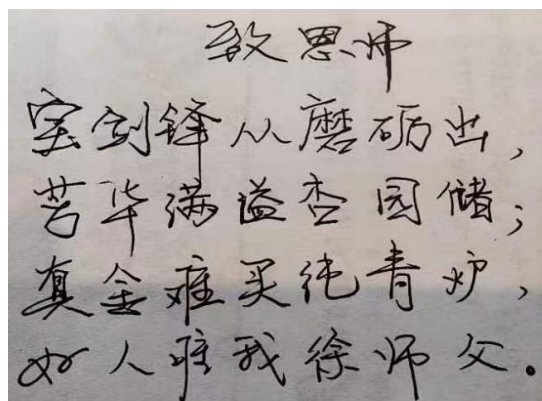 致恩师
宝剑锋从磨砺出,
芳华满溢杏园储;
真金难买纯青炉,
好人难我徐师父。